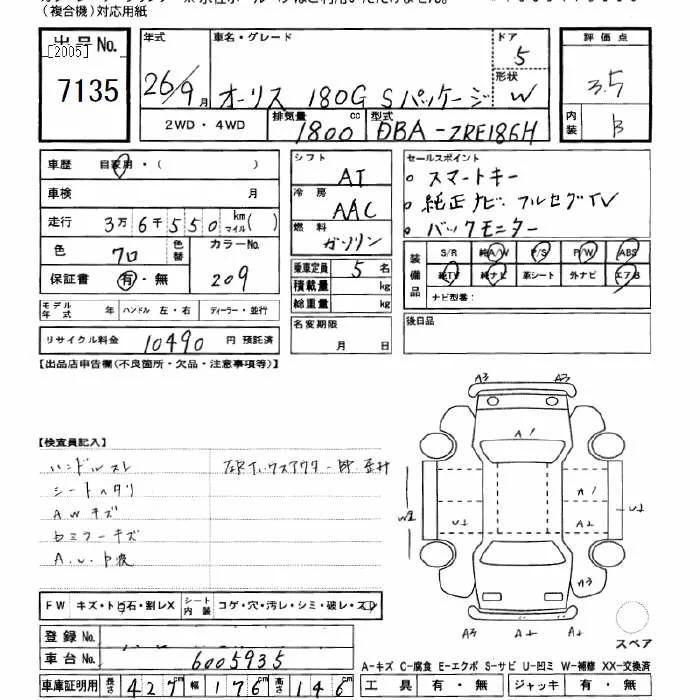 (複合機)対応用紙
出品No.
[2005]
7135
年式 車名・グレード ドア
26/9月 オーリス 180G Sパッケージ 5
形状 W
2WD・4WD 排気量 1800 cc 型式 DBA-ZRE186H
評価点
3.5
内装 B
車歴 自家用・( )
車検 月
走行 3万6千550 km マイル( )
色 クロ 色替 カラーNo. 209
保証書 有・無
モデル年式 年 ハンドル 左・右 ディーラー・並行
リサイクル料金 10490 円 預託済
シフト AT
冷房 AAC
燃料 ガソリン
乗車定員 5名
積載量 kg
総重量 kg
名変期限
月 日
セールスポイント
。スマートキー
。純正ナビ フルセグTV
。バックモニター
装備品 S/R 純A/W P/S P/W ABS
純TV 純ナビ 革シート 外ナビ エアB
ナビ型番:
後日品
【出品店申告欄(不良箇所・欠品・注意事項等)】
【検査員記入】
ハンドルスレ
シートヘタリ
AWキズ
ドミラーキズ
A3 A3
A1
A1
W2 U1 A2 U1
A3
A2
FW キズ・トビ石・割レX シート内装 コゲ・穴・汚レ・シミ・破レ・スレ
登録No.
車台No. 6005935
車庫証明用 長さ 427cm 幅 176cm 高さ 146cm
スペア
A-キズ C-腐食 E-エクボ S-サビ U-凹ミ W-補修 XX-交換済
工具 有・無 ジャッキ 有・無